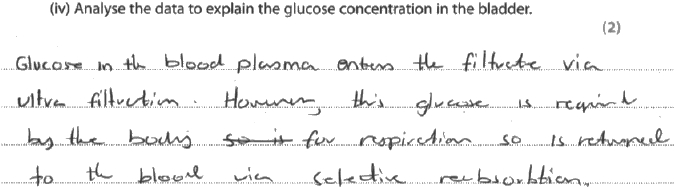 (iv) Analyse the data to explain the glucose concentration in the bladder.
(2)
Glucose in th blood plasma enters the filtrate via
ultra filtration. However, this glucose is required
by the body so it for respiration so is returned
to th blood via selective reabsorbtion.